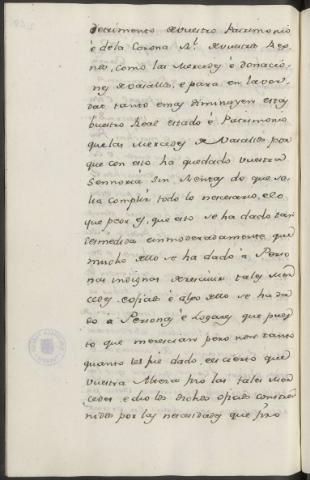 decrimento de vuestro Patrimonio
è de la Corona Rl. de vuestros Rey
nos, como las Mercedes è donacio
nes de Vasallos, è para en
dar tanto emas diminuyen esta
vuestro Real estado è Patrimonio
que las Mercedes de Vasallos por
que con esto ha quedado vuestra
Señoria sin Rentas de que so
lia complir todo lo necesario, e lo
que peor es, que esto se ha dado tan
desmedida è inmoderadamente que
mucho dello se ha dado à Perso
nas indignas de recivir tales Mer
cedes, è ofisios è algo dello se ha da
do à Personas è Logares que puès
to que merescian pero non tanto
quanto les fue dado, è es cierto que
vuestra Alteza fizo las tales Mer
cedes, è dio los dichos ofisios constre
ñidos por las necesidades que fizo